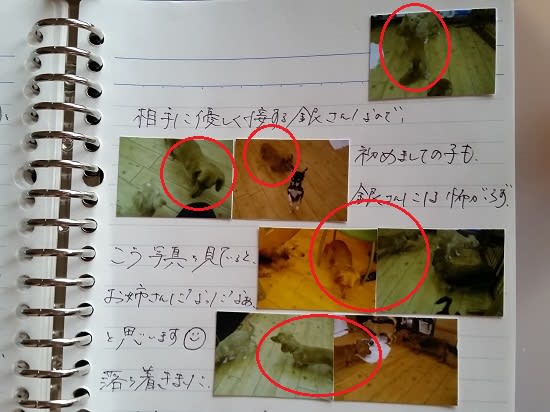 相手に優しく接する銀さんなので、
初めましての子も、
銀さんには怖がらず、
こう写真を見ていると、
お姉さんになったなぁ、
と思います☺
落ち着きました。